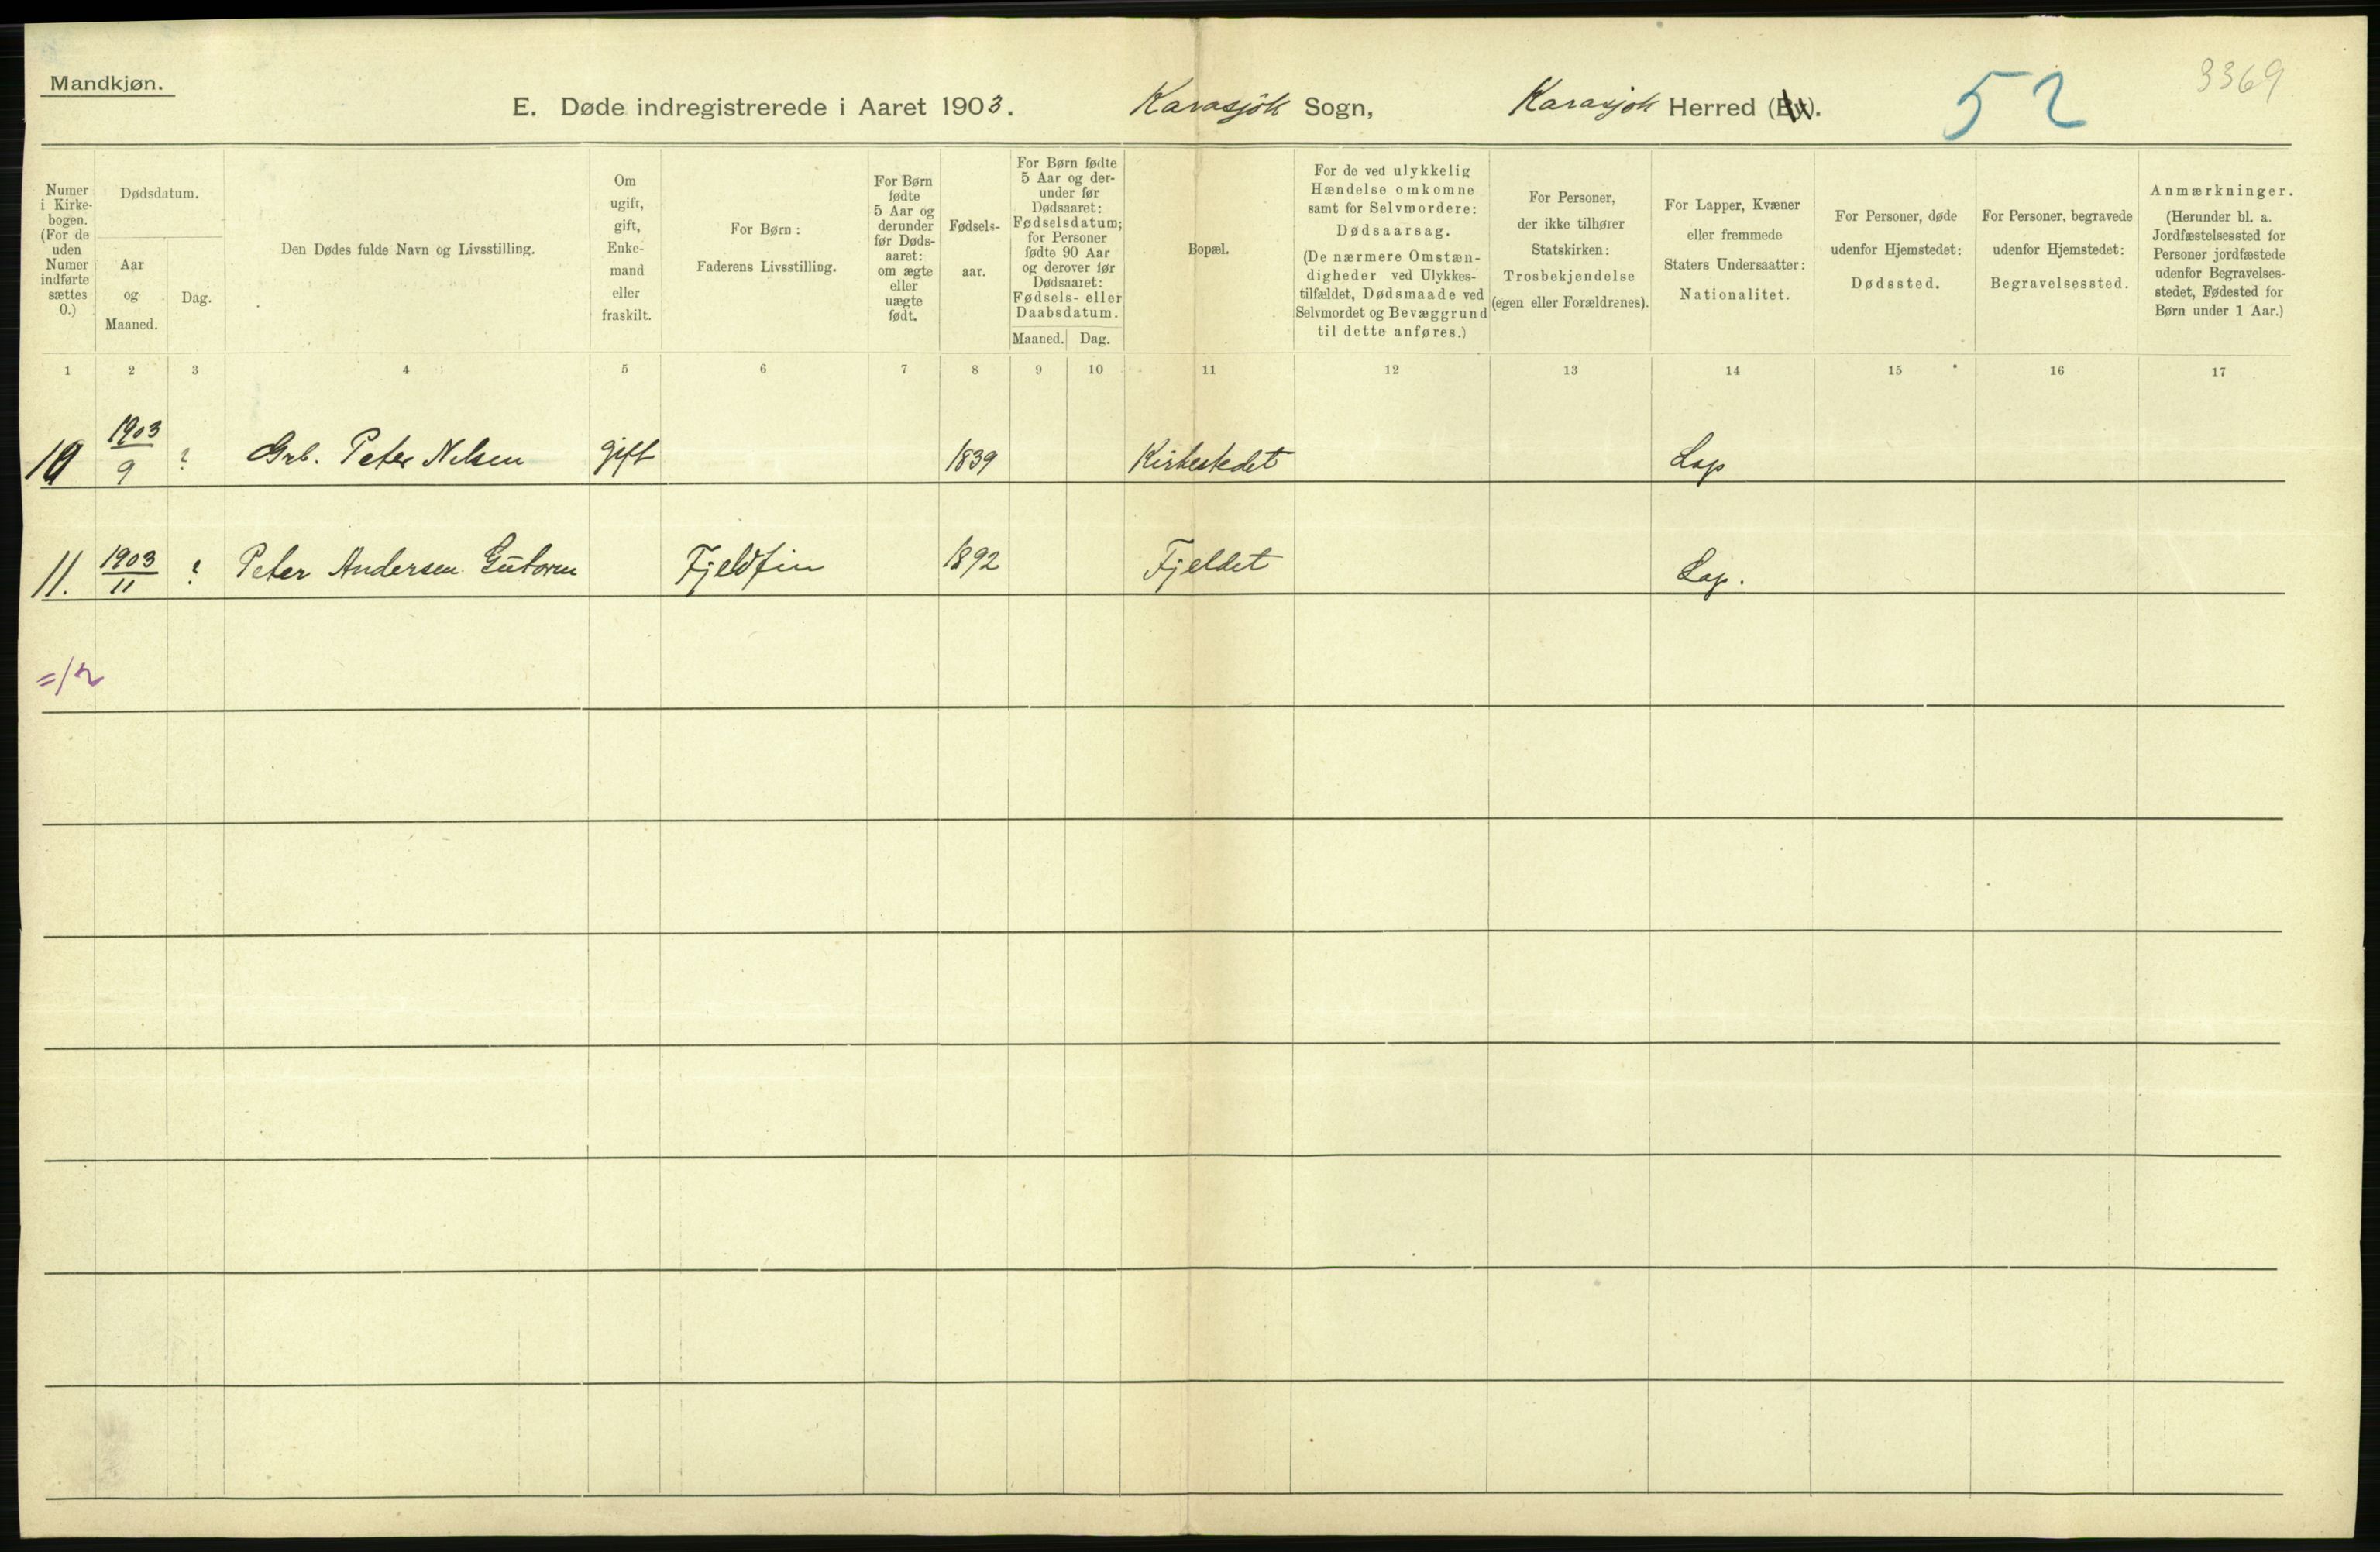 Mandkjøn.
3369
E. Døde indregistrerede i Aaret 1903. Karasjok Sogn, Karasjok Herred (By). 52
Numer i Kirke-bogen. (For de uden Numer indførte sættes 0.)
Dødsdatum.
Aar og Maaned.
Dag.
Den Dødes fulde Navn og Livsstilling.
Om ugift, gift, Enke-mand eller fraskilt.
For Børn:
Faderens Livsstilling.
For Børn fødte 5 Aar og derunder før Døds-aaret: om ægte eller uægte født.
Fødsels-aar.
For Børn fødte 5 Aar og der-under før Dødsaaret: Fødselsdatum; for Personer fødte 90 Aar og derover før Dødsaaret: Fødsels- eller Daabsdatum.
Maaned. Dag.
Bopæl.
For de ved ulykkelig Hændelse omkomne samt for Selvmordere: Dødsaarsag.
(De nærmere Omstæn-digheder ved Ulykkes-tilfældet, Dødsmaade ved Selvmordet og Bevæggrund til dette anføres.)
For Personer, der ikke tilhører Statskirken: Trosbekjendelse (egen eller Forældrenes).
For Lapper, Kvæner eller fremmede Staters Undersaatter: Nationalitet.
For Personer, døde udenfor Hjemstedet: Dødssted.
For Personer, begravede udenfor Hjemstedet: Begravelsessted.
Anmærkninger.
(Herunder bl. a. Jordfæstelsessted for Personer jordfæstede udenfor Begravelses-stedet, Fødested for Børn under 1 Aar.)
1 2 3 4 5 6 7 8 9 10 11 12 13 14 15 16 17
10 1903/9 ? Grb. Peter Nilsen gift 1839 Kirkestedet Lap
11. 1903/11 ? Peter Andersen Guttorm Fjeldfin 1892 Fjeldet Lap.
=/2